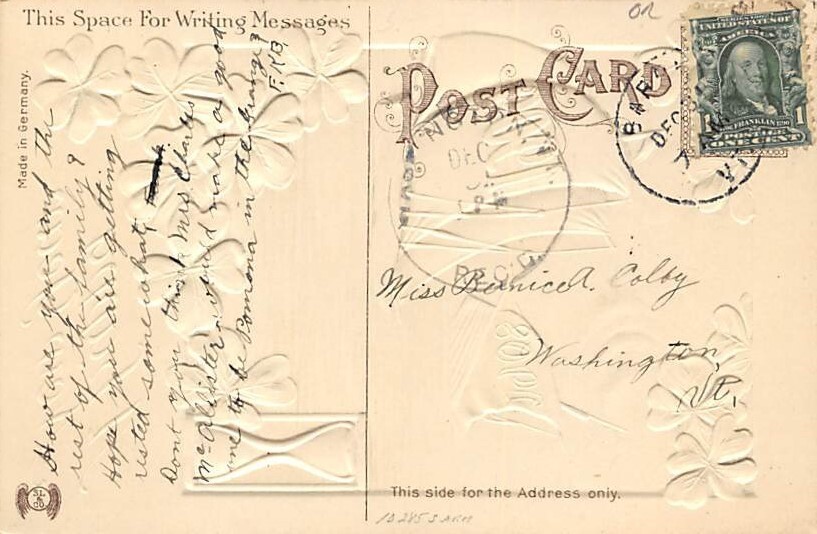 This Space For Writing Messages
Made in Germany.
How are you and the
rest of the family?
Hope you are getting
rested somewhat.
Dont you think Mrs Charles
McAllister would make a good
one to be Pomona in the Grange?
F.K.B.
POST CARD
OR
SERIES 1902
UNITED STATES OF
AMERICA
FRANKLIN 1790
1 1
ONE CENT
BARRE
DEC 31
7 AM
VT
WASHINGTON
DEC
31
REC'D.
Miss Bernice A. Colby
Washington,
Vt.
1908
This side for the Address only.
SL
& CO